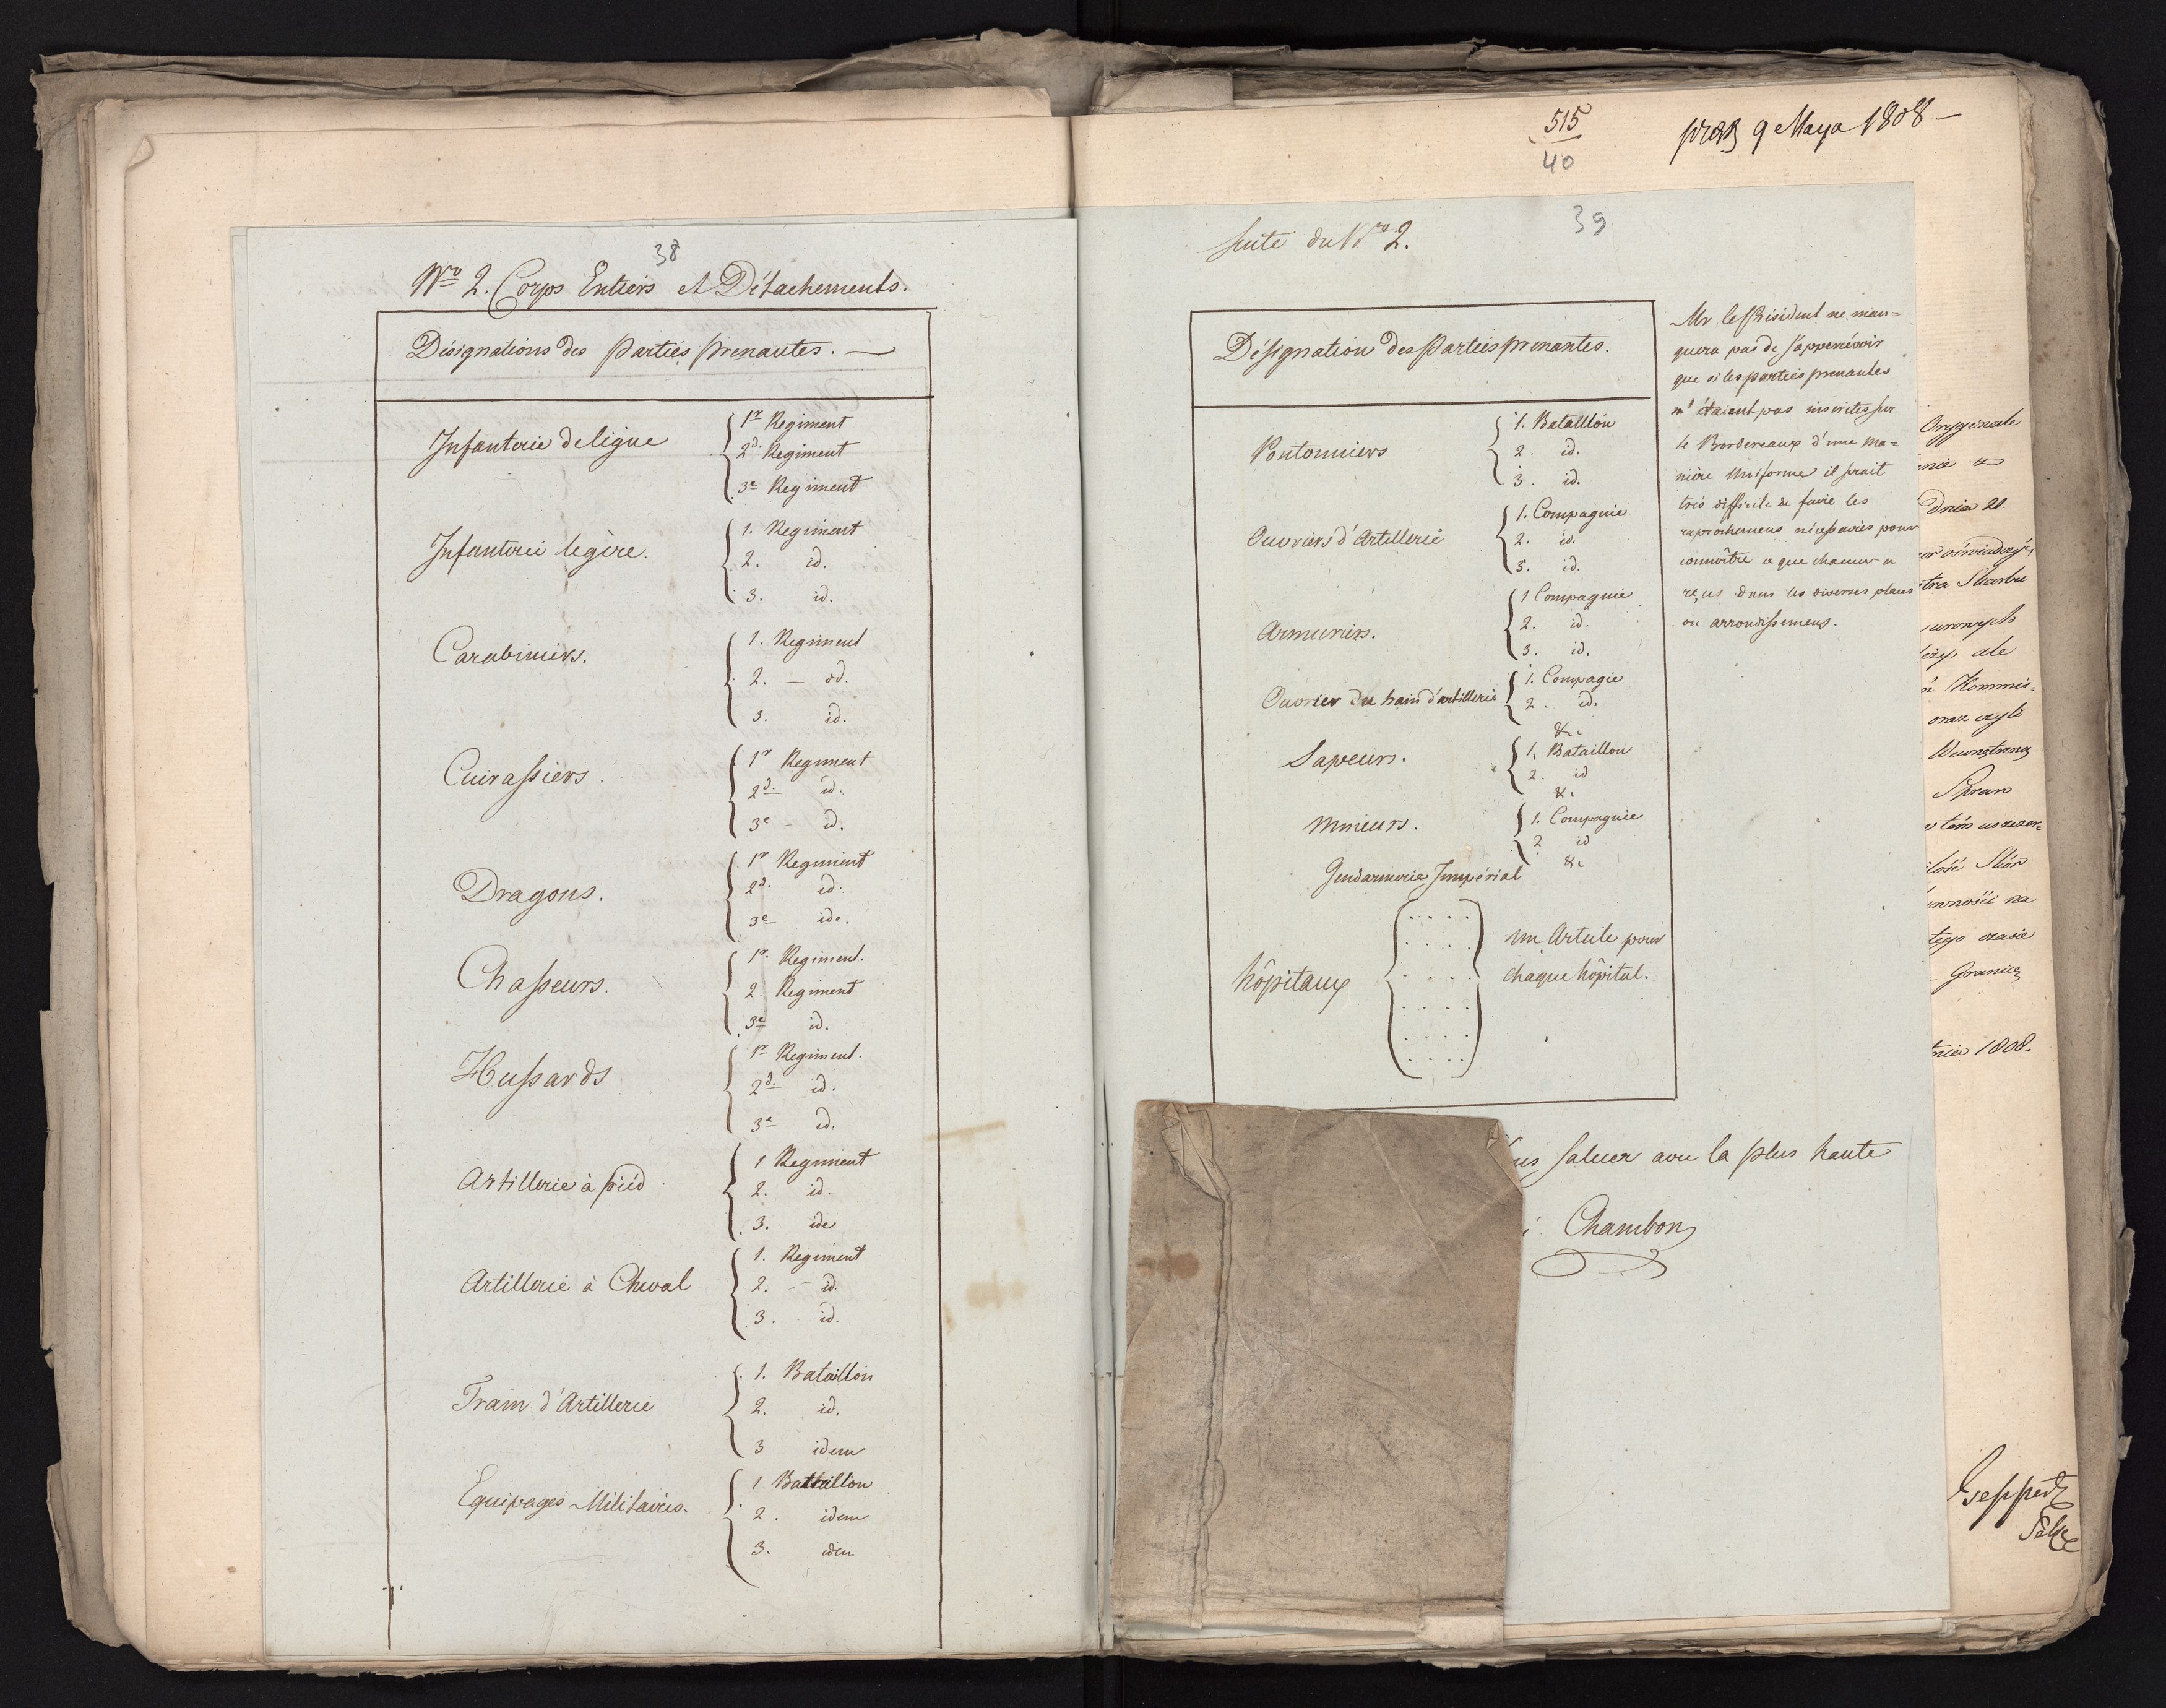 38
Nro 2. Corps Entiers et Détachements.
Désignations des Parties prenantes. —
Infanterie de ligne
1r Regiment
2d. Regiment
3e Regiment
Infanterie legère.
1. Regiment
2. id.
3. id.
Carabiniers.
1. Regiment
2. — id.
3. id.
Cuirassiers.
1r Regiment
2d. id.
3e - id.
Dragons.
1r Regiment
2d. id.
3e ide.
Chasseurs.
1r. Regiment.
2. Regiment
3e id.
Hussards
1r Regiment.
2d. id.
3e id.
Artillerie à pied
1 Regiment
2. id.
3. ide
Artillerie à Cheval
1. Regiment
2. - id.
3. id.
Train d'Artillerie
1. Bataillon
2. id.
3 idem
Equipages Militaires.
1 Bataillon
2. idem
3. idem
515
40
9 Maja 1808 —
39
Suite du Nro 2.
Désignation des Parties prenantes.
Pontonniers
1. Bataillon
2. id.
3. id.
Ouvriers d'Artillerie
1. Compagnie
2. id.
3. id.
Armuriers.
1 Compagnie
2. id.
3. id.
Ouvrier du train d'artillerie
1. Compagie
2. id.
&c
Sapeurs.
1. Bataillon
2. id
&c
Mineurs.
1. Compagnie
2 id
&c
Gendarmerie Impérial
hôpitaux
un Article pour
chaque hôpital.
Mr le Président ne man=
quera pas de s'appercevoir
que si les parties prenantes
n'étaient pas inscrites sur
le Bordereaux d'une ma=
nière Uniforme il serait
très difficile de faire les
raprochemens nécessaires pour
connoître ce que chacun a
reçus dans les diverses places
ou arrondissemens.
saluer avec la plus haute
Chambon
Oryginale
dnia 21.
oświadczyć,
Skarbu
ale
Kommis=
oraz czyli
Wewnętrzną
Spraw
Słów
na
tego czasie
Granicą
1808.